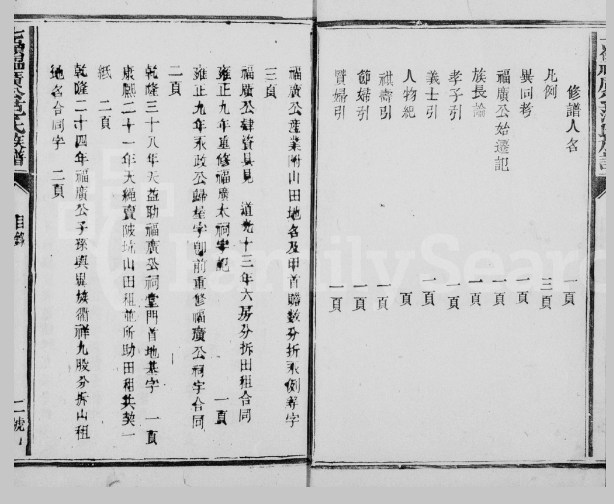 修譜人名 一頁
凡例 三頁
異同考 二頁
福廣公始遷記 一頁
族長論 一頁
孝子引 一頁
義士引 一頁
人物紀 頁
祺壽引 一頁
節婦引 一頁
賢婦引 一頁
福廣公產業附山田地名及甲首賬數分折承例等字
三頁
福廣公肆資具見 道光十三年六房分拆田租合同
雍正九年重修福廣太祠字記 一頁
雍正九年永政公歸屋字朗前重修福廣公祠字合同
二頁
乾隆三十八年天益助福廣公祠堂門首地基字 一頁
康熙二十一年天繩賣陂坑山田租並所助田租共契一
紙 二頁
乾隆二十四年福廣公子孫與堤族衢祥九股分拆山租
地名合同字 二頁
福廣公 氏族譜
目錄
二號
FamilySearch